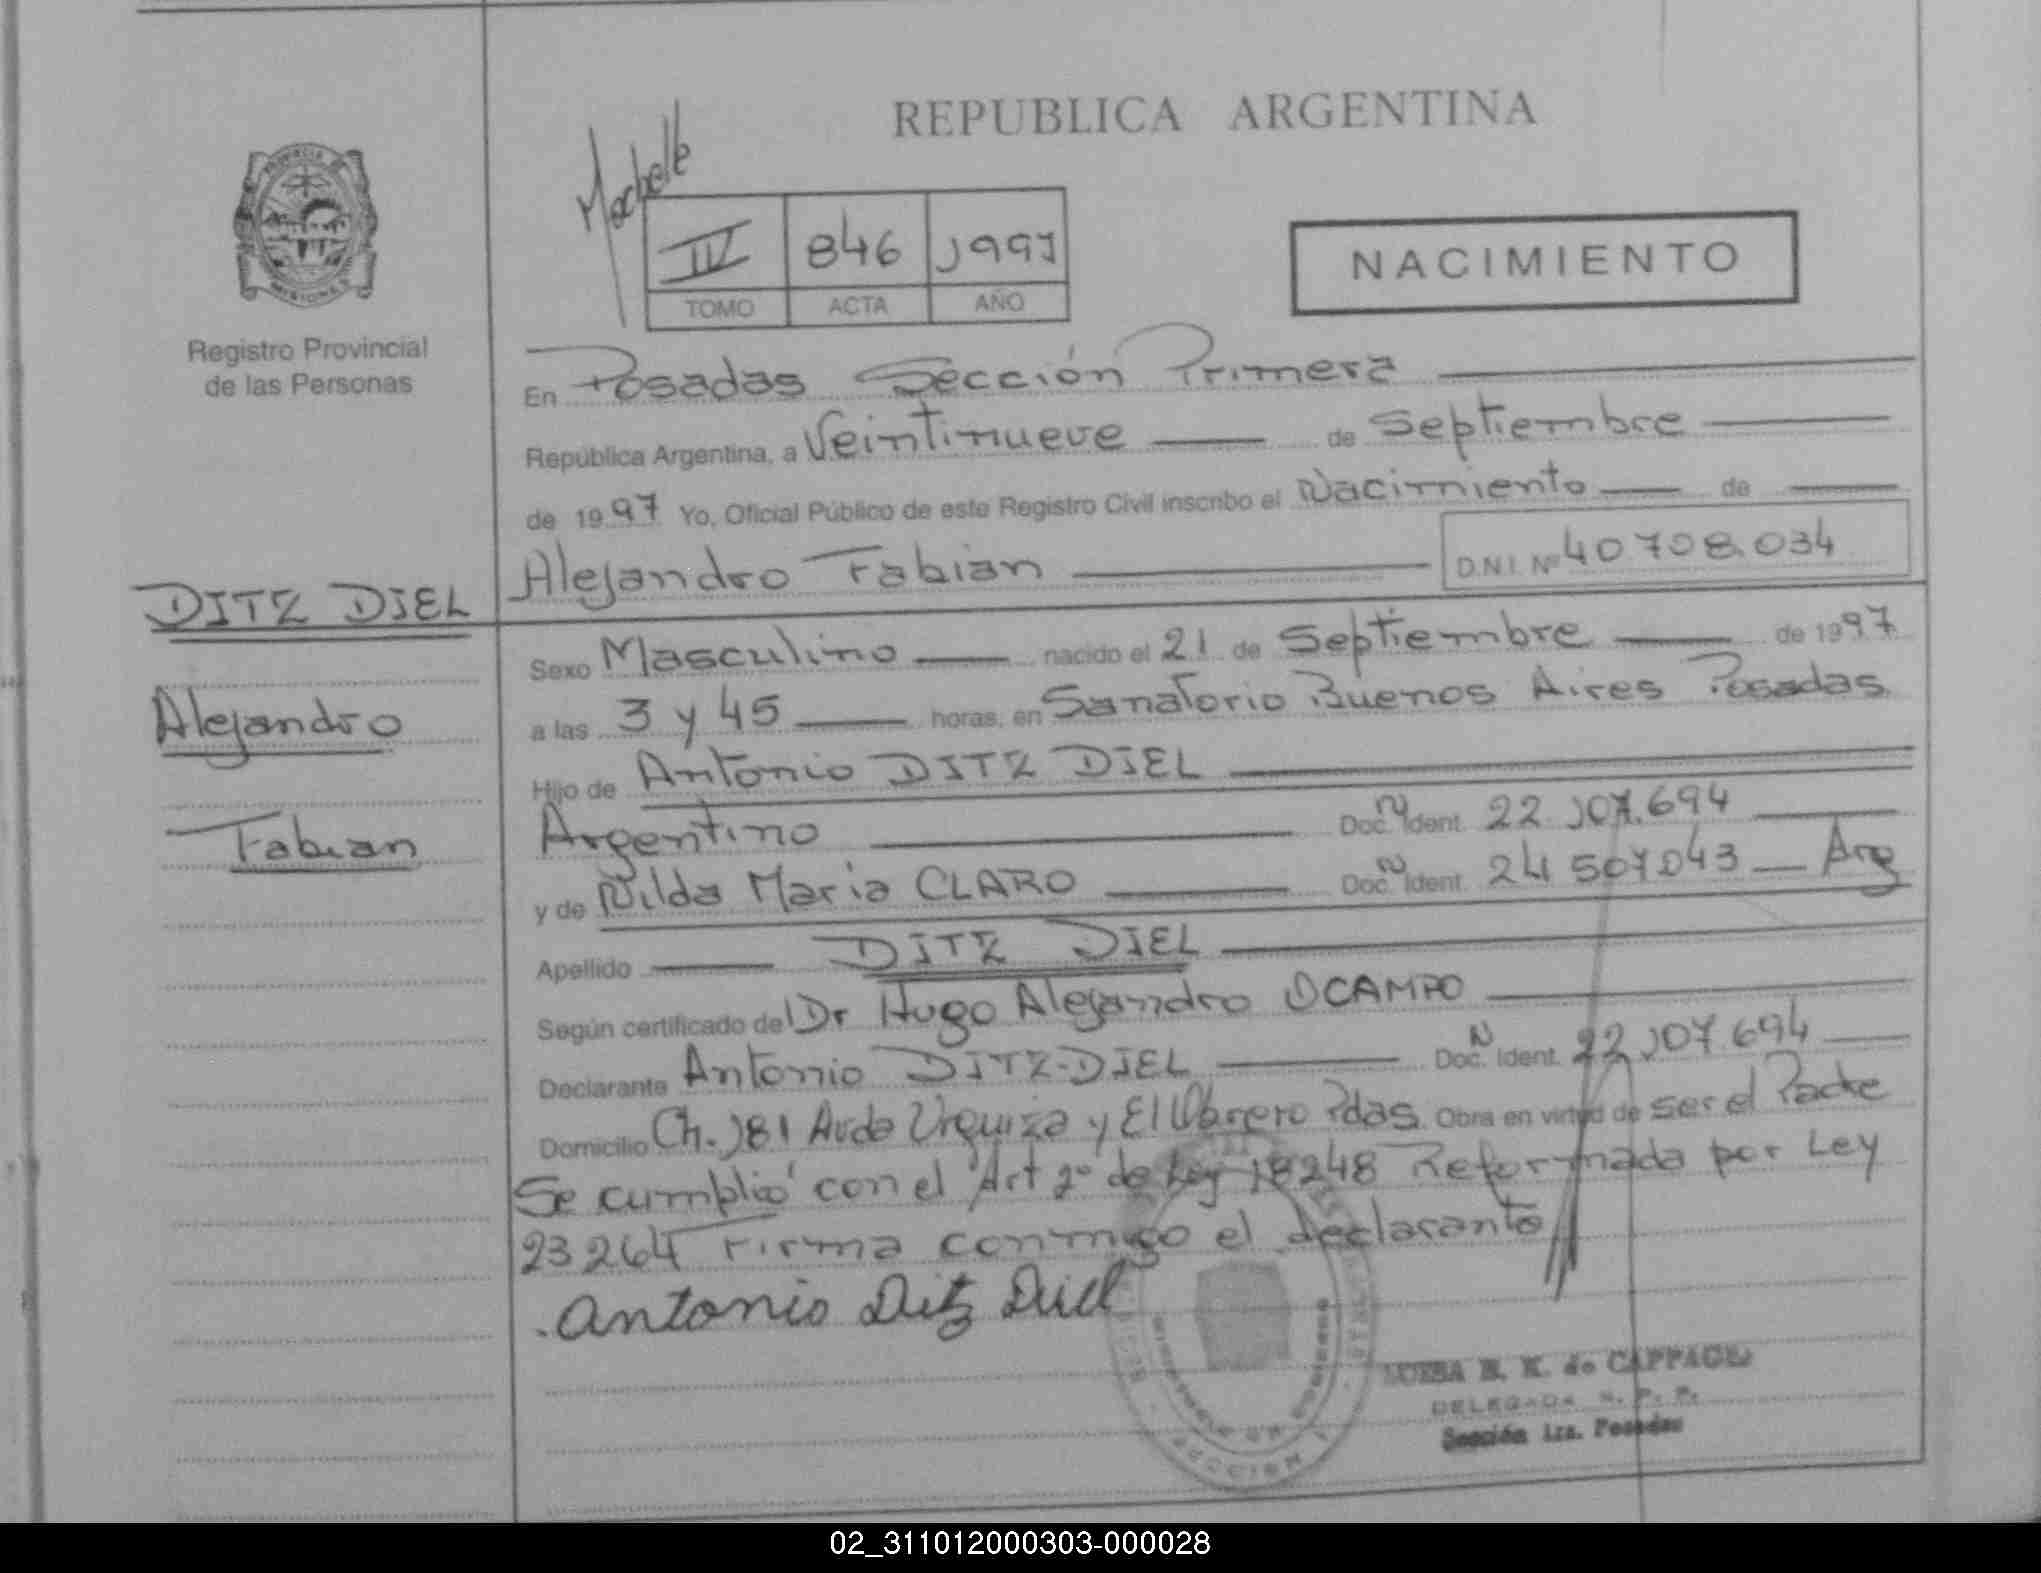 REPUBLICA ARGENTINA
IV 846 1997
TOMO ACTA AÑO
NACIMIENTO
Registro Provincial
de las Personas
En Posadas Sección Primera
República Argentina, a Veintinueve de Septiembre
de 1997 Yo, Oficial Público de este Registro Civil inscribo el Nacimiento de
Alejandro Fabian D.N.I. Nº 40708.034
DITZ DIEL
Alejandro
Fabian
Sexo Masculino nacido el 21 de Septiembre de 1997
a las 3 y 45 horas, en Sanatorio Buenos Aires Posadas
Hijo de Antonio DITZ DIEL
Argentino Doc. N Ident. 22 107.694
y de Nilda Maria CLARO Doc. N Ident. 24 507043 Arg
Apellido DITZ DIEL
Según certificado del Dr Hugo Alejandro OCAMPO
Declarante Antonio DITZ-DIEL Doc. N Ident. 22 107.694
Domicilio Ch. 181 Avda Urquiza y El Obrero Pdas. Obra en virtud de ser el Padre
Se cumplió con el Art 2º de Ley 18248 Reformada por Ley
23264 Firma conmigo el declarante
Antonio Ditz Diel
de CAPPAGLI
DELEGADA R. P. P.
Sección 1ra. Posadas
02_311012000303-000028